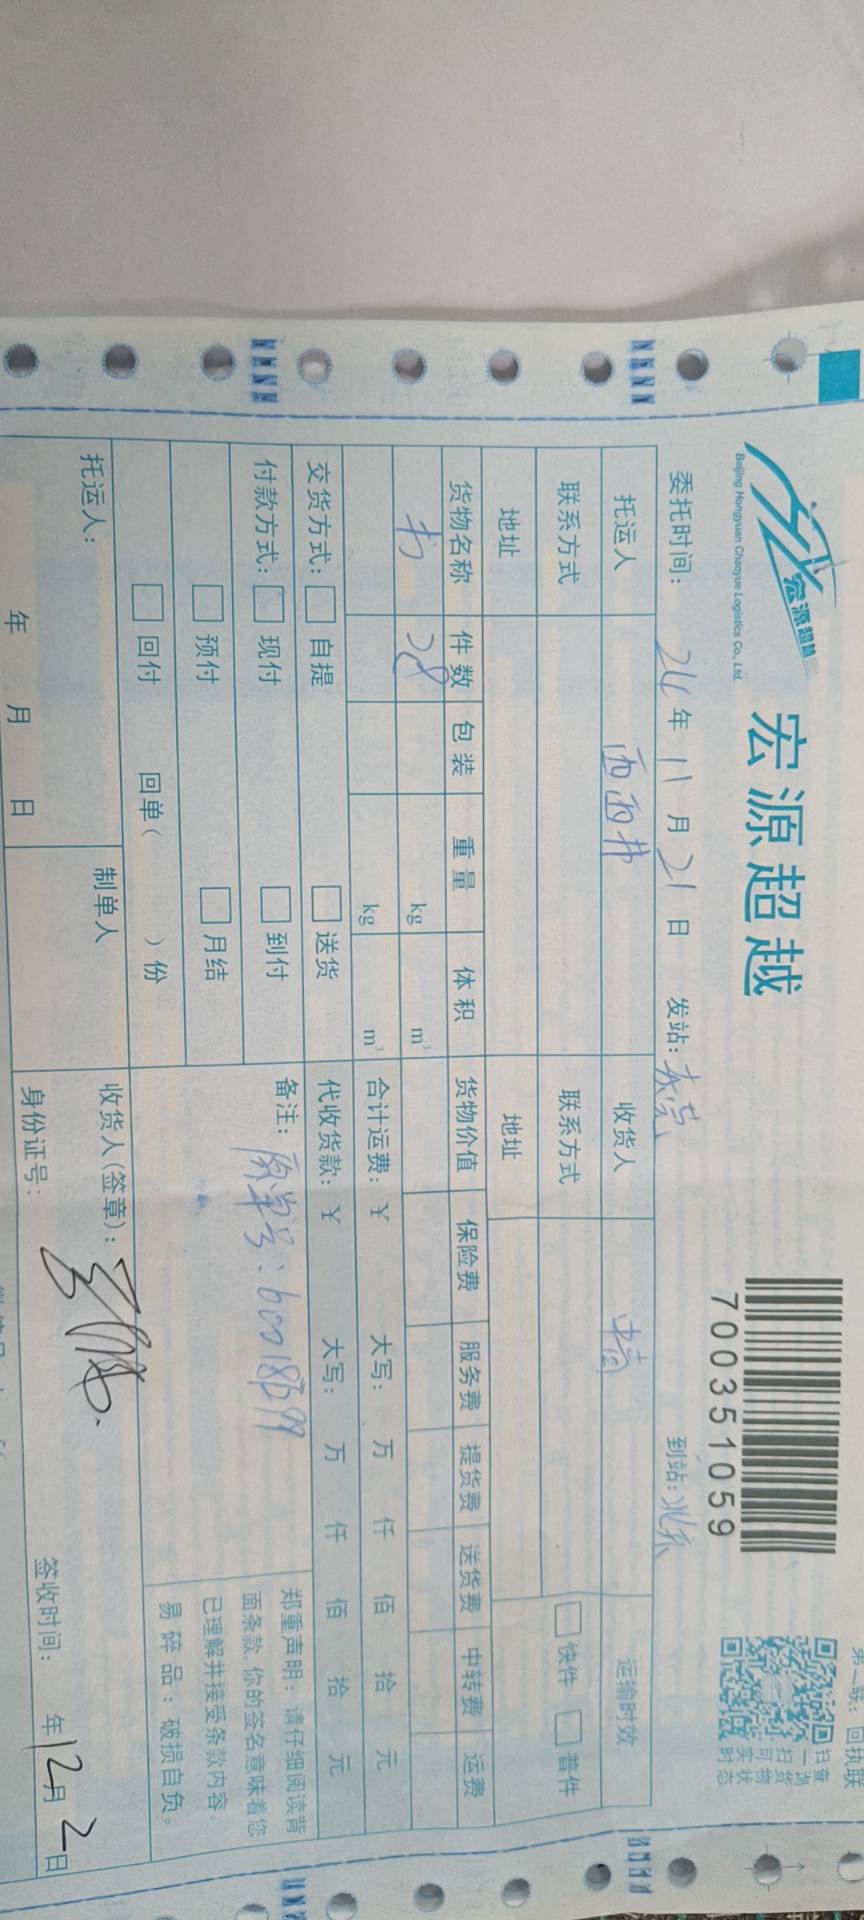 第二联：回执联
宏源超越
Beijing Hongyuan Chaoyue Logistics Co., Ltd.
宏源超越
700351059
扫一扫可实时
查询货物状态
委托时间： 24 年 11 月 21 日 发站：东莞 到站：北京
托运人 西西弗 收货人 运输时效
联系方式 联系方式 快件 普件
地址 地址
货物名称 件数 包装 重量 体积 货物价值 保险费 服务费 提货费 送货费 中转费 运费
书 28 kg m³
kg m³ 合计运费：￥ 大写： 万 仟 佰 拾 元
交货方式： 自提 送货 代收货款：￥ 大写： 万 仟 佰 拾 元
付款方式： 现付 到付 备注：原单号：
预付 月结
回付 回单（ ）份
郑重声明：请仔细阅读背
面条款，你的签名意味着您
已理解并接受条款内容。
易碎品：破损自负。
托运人： 制单人 收货人(签章)：
年 月 日 身份证号： 签收时间： 年 12 月 2 日